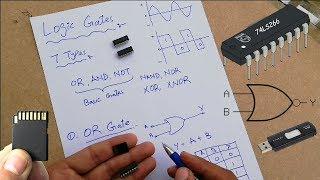 Logic Gates
7 Types
OR, AND, NOT
Basic Gates
NAND, NOR
XOR, XNOR
① OR Gate
A
B
Y
Y = A + B
A B Y
0 0 0
1
0
1
0
1
74LS266
A
B
Y